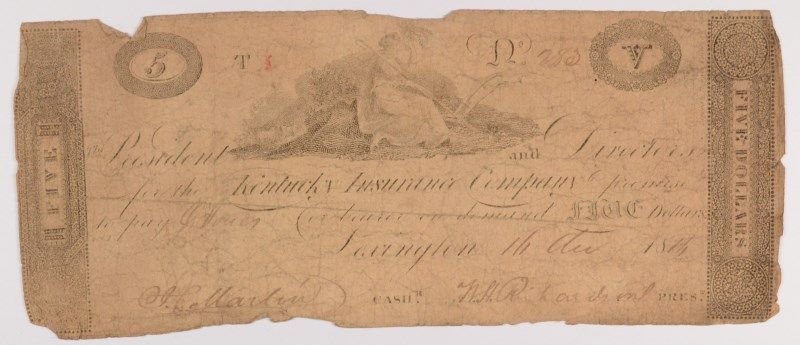 5 T 5 No. 283 V
FIVE
FIVE DOLLARS
The President and Directors
for the Kentucky Insurance Company promise
to pay or bearer on demand FIVE Dollars
Lexington 18
CASHR. PREST.